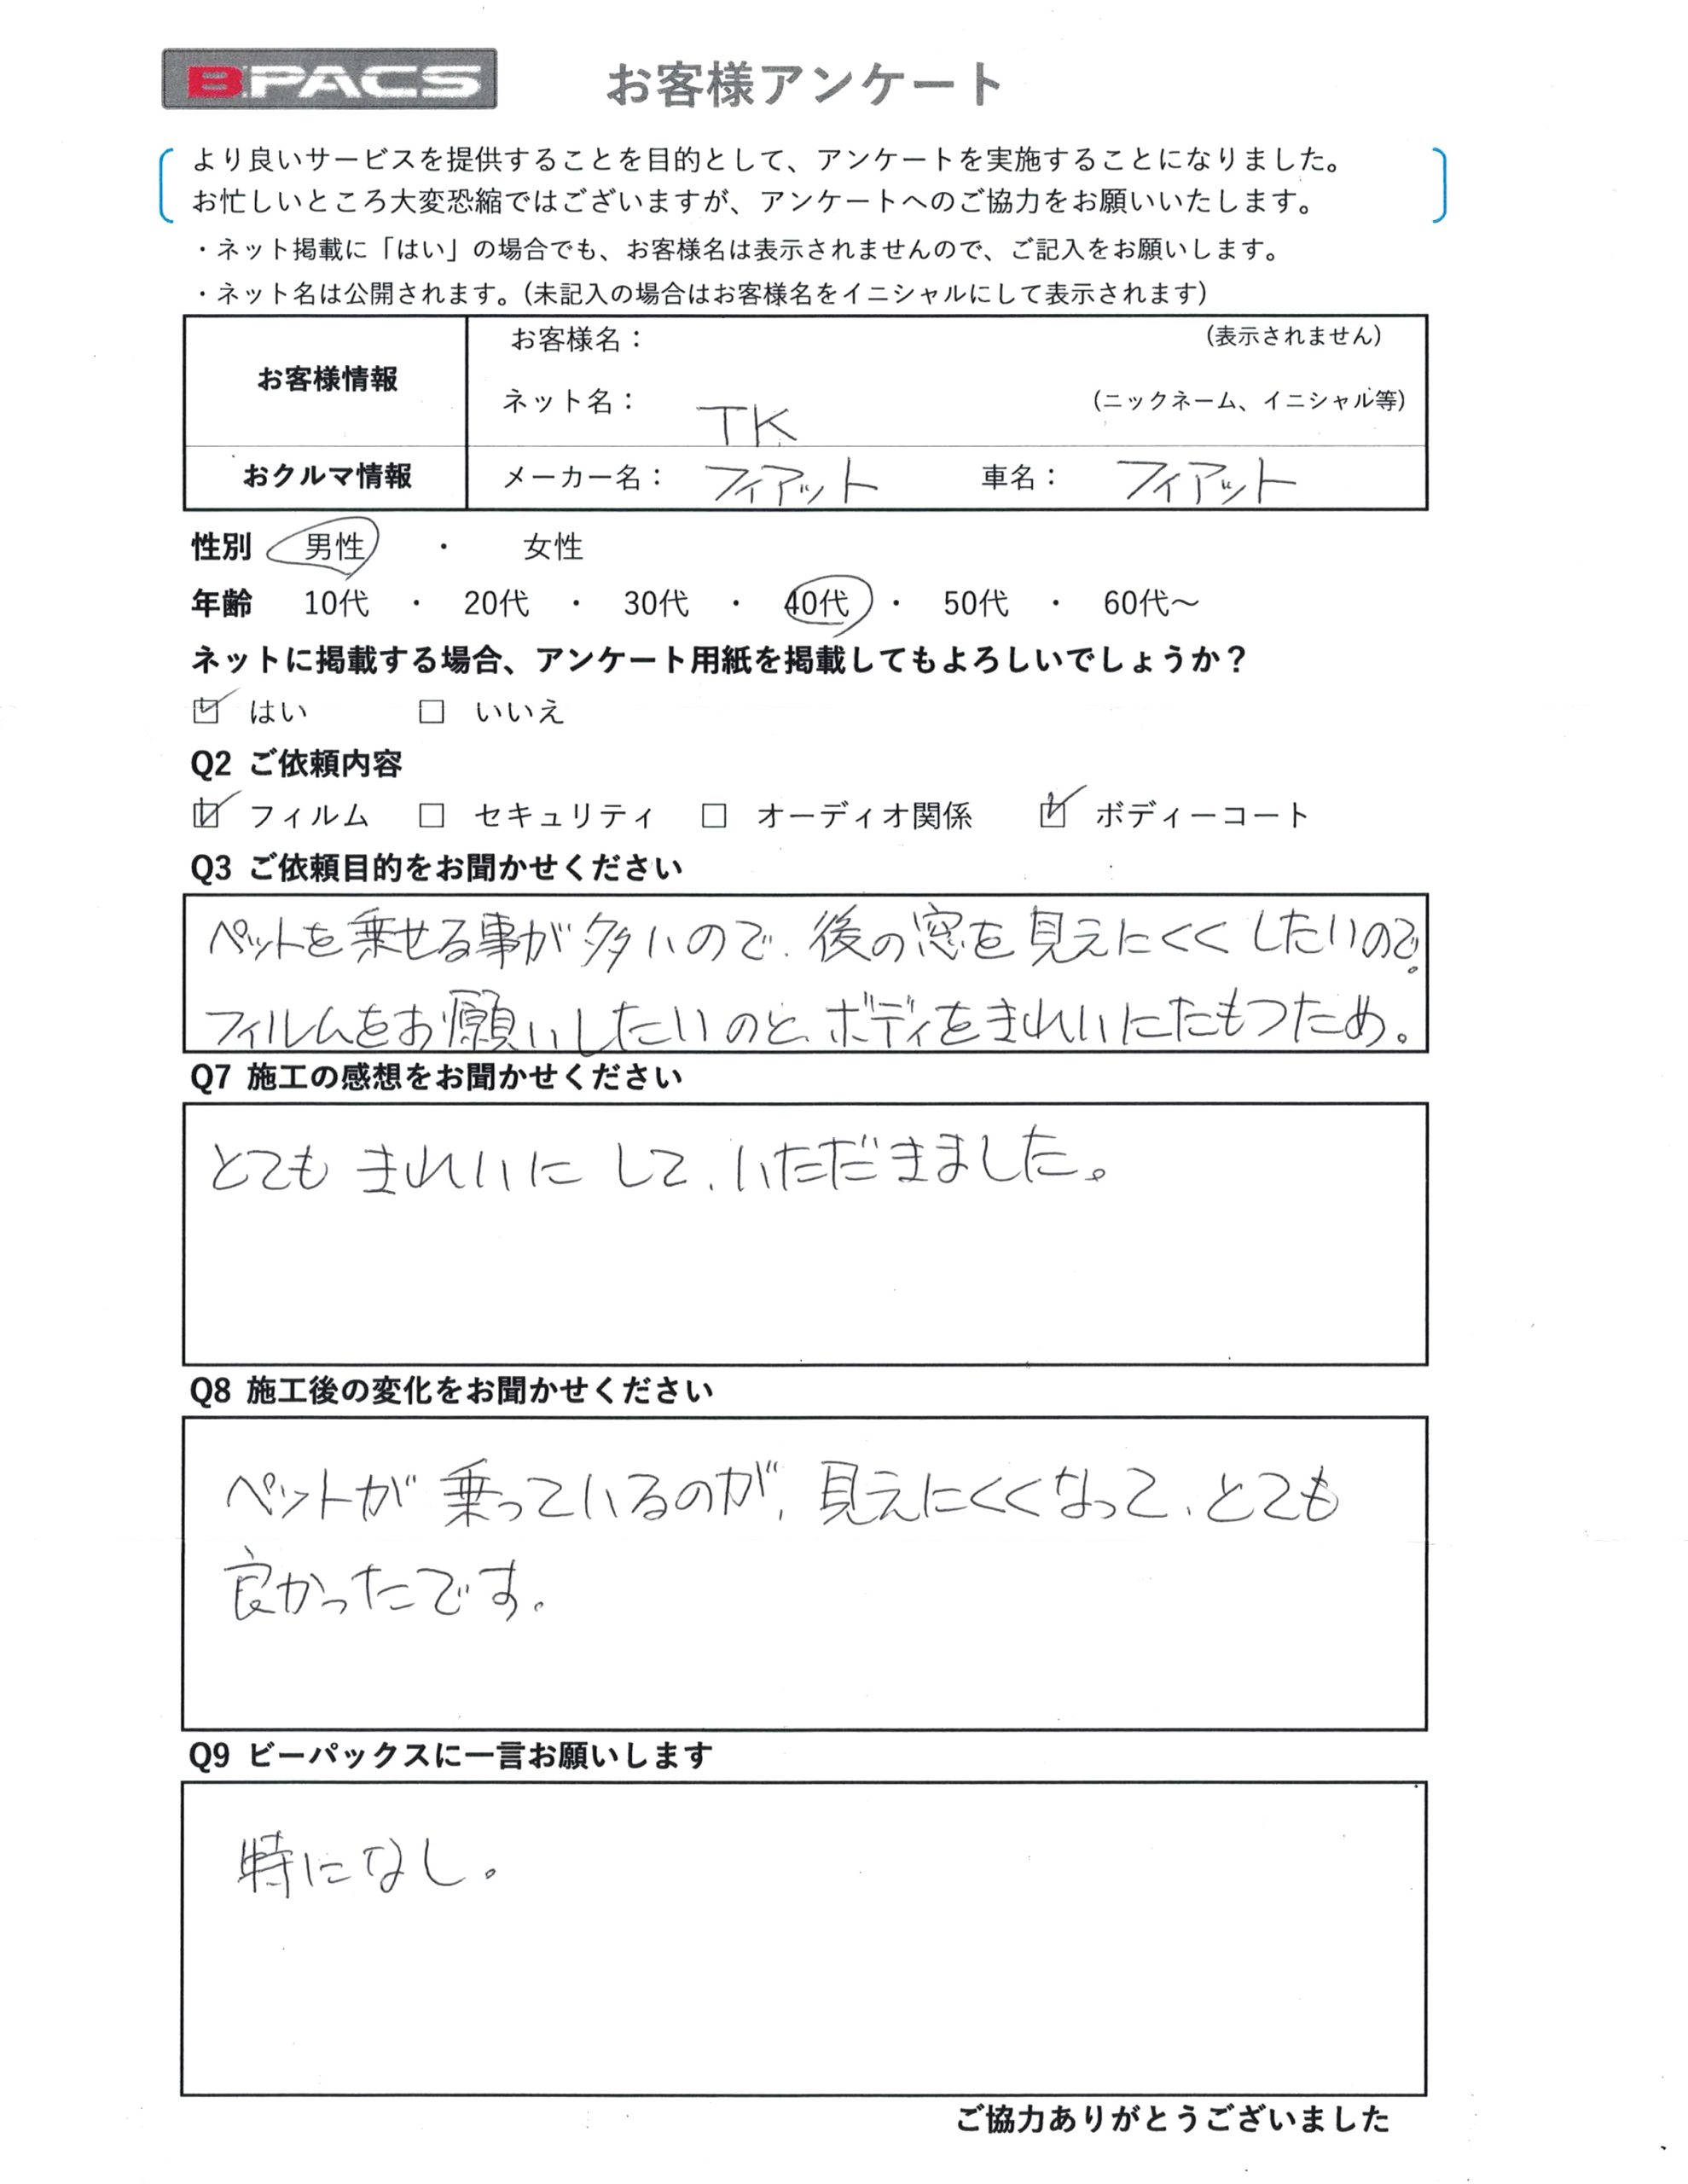 B.PACS お客様アンケート
より良いサービスを提供することを目的として、アンケートを実施することになりました。
お忙しいところ大変恐縮ではございますが、アンケートへのご協力をお願いいたします。
・ネット掲載に「はい」の場合でも、お客様名は表示されませんので、ご記入をお願いします。
・ネット名は公開されます。(未記入の場合はお客様名をイニシャルにして表示されます)
お客様情報
お客様名： (表示されません)
ネット名： TK (ニックネーム、イニシャル等)
おクルマ情報 メーカー名： フィアット 車名： フィアット
性別 男性 ・ 女性
年齢 10代 ・ 20代 ・ 30代 ・ 40代 ・ 50代 ・ 60代～
ネットに掲載する場合、アンケート用紙を掲載してもよろしいでしょうか？
☑ はい □ いいえ
Q2 ご依頼内容
☑ フィルム □ セキュリティ □ オーディオ関係 ☑ ボディーコート
Q3 ご依頼目的をお聞かせください
ペットを乗せる事が多いので、後の窓を見えにくくしたいので。
フィルムをお願いしたいのと、ボディをきれいにたもつため。
Q7 施工の感想をお聞かせください
とても きれいに して、いただきました。
Q8 施工後の変化をお聞かせください
ペットが 乗っているのが、見えにくくなって、とても
良かったです。
Q9 ビーパックスに一言お願いします
特になし。
ご協力ありがとうございました